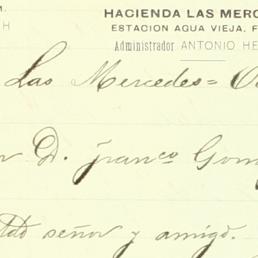 M. HACIENDA LAS MERC
H ESTACION AGUA VIEJA, F
Administrador ANTONIO HE
Las Mercedes = O
D. Franco Gom
señor y amigo.